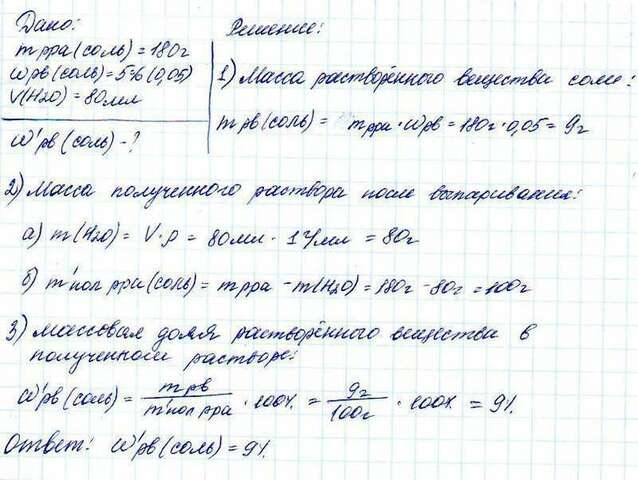 Дано:
m рра (соль) = 180г
ωрв (соль) = 5% (0,05)
V(H2O) = 80мл
ω'рв (соль) - ?
Решение:
1) Масса растворённого вещества соли:
m рв (соль) = m рра · ωрв = 180г · 0,05 = 9г
2) Масса полученного раствора после выпаривания:
а) m(H2O) = V · ρ = 80мл · 1г/мл = 80г
б) m'пол рра (соль) = m рра - m(H2O) = 180г - 80г = 100г
3) массовая доля растворённого вещества в
полученном растворе:
ω'рв (соль) = m рв / m'пол рра · 100% = 9г / 100г · 100% = 9%
Ответ: ω'рв (соль) = 9%